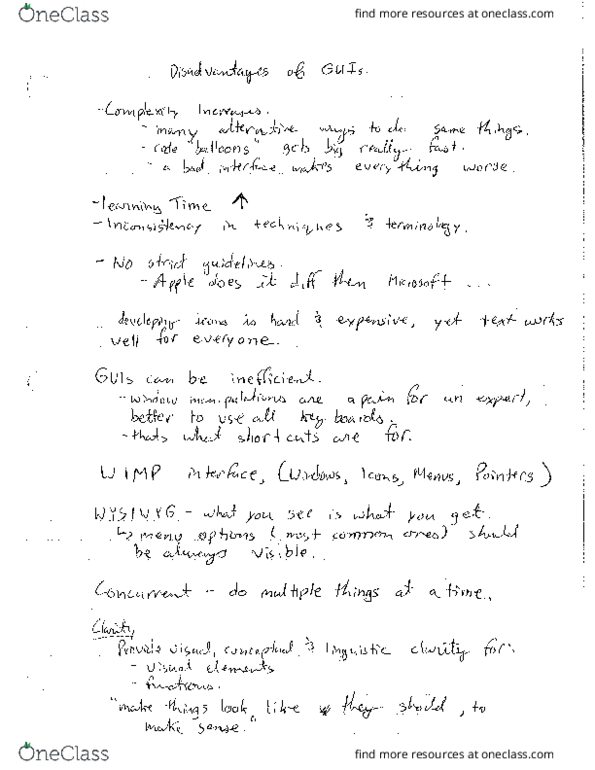 OneClass
find more resources at oneclass.com
Disadvantages of GUIs.
- Complexity Increases.
- many alternative ways to do same things.
- code "balloons" gets big really fast.
- a bad interface makes everything worse.
- learning Time ↑
- Inconsistency in techniques & terminology.
- No strict guidelines.
- Apple does it diff then Microsoft ...
developing icons is hard & expensive, yet text works
well for everyone.
GUIs can be inefficient.
- window manipulations are a pain for an expert,
better to use all key boards.
- thats what short cuts are for.
WIMP interface, (Windows, Icons, Menus, Pointers)
WYSIWYG - what you see is what you get.
↳ menu options (most common ones) should
be always visible.
Concurrent - do multiple things at a time.
Clarity
Provide visual, conceptual & linguistic clarity for:
- visual elements
- functions.
"make things look like they should, to
make sense."
OneClass
find more resources at oneclass.com